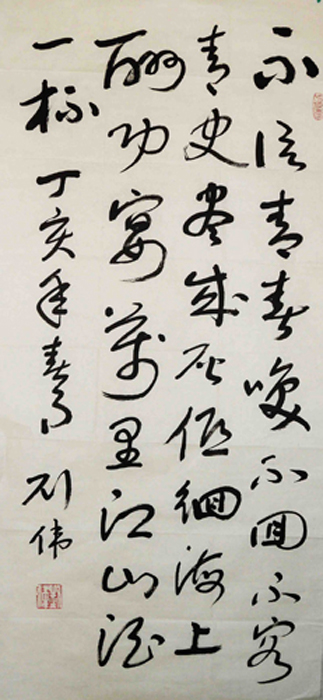 不信青春唤不回不容
青史尽成灰低徊海上
酬功宴万里江山酒
一杯 丁亥年春月 刘伟